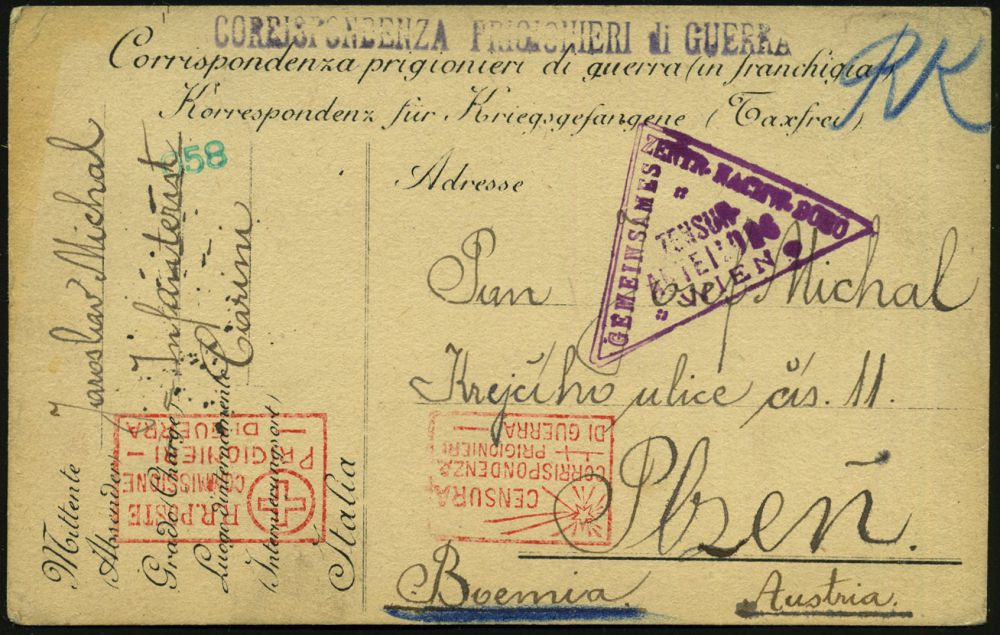 CORRISPONDENZA PRIGIONIERI di GUERRA
Corrispondenza prigionieri di guerra (in franchigia)
Korrespondenz für Kriegsgefangene (Taxfrei)
RK
58
Adresse
GEMEINSAMES
ZENTR. NACHW. BURO
ZENSUR
WIEN
Pan Michal
Krejčího ulice čís. 11.
Plzeň.
Boemia.
Austria.
Mittente
(Absender)
Jaroslav Michal
Grado (Charge)
Infanterist
Luogo d'internamento
(Internierungsort)
Italia
R.R. POSTE
COMMISSIONE
PRIGIONIERI
DI GUERRA
CENSURA
CORRISPONDENZA
PRIGIONIERI
DI GUERRA